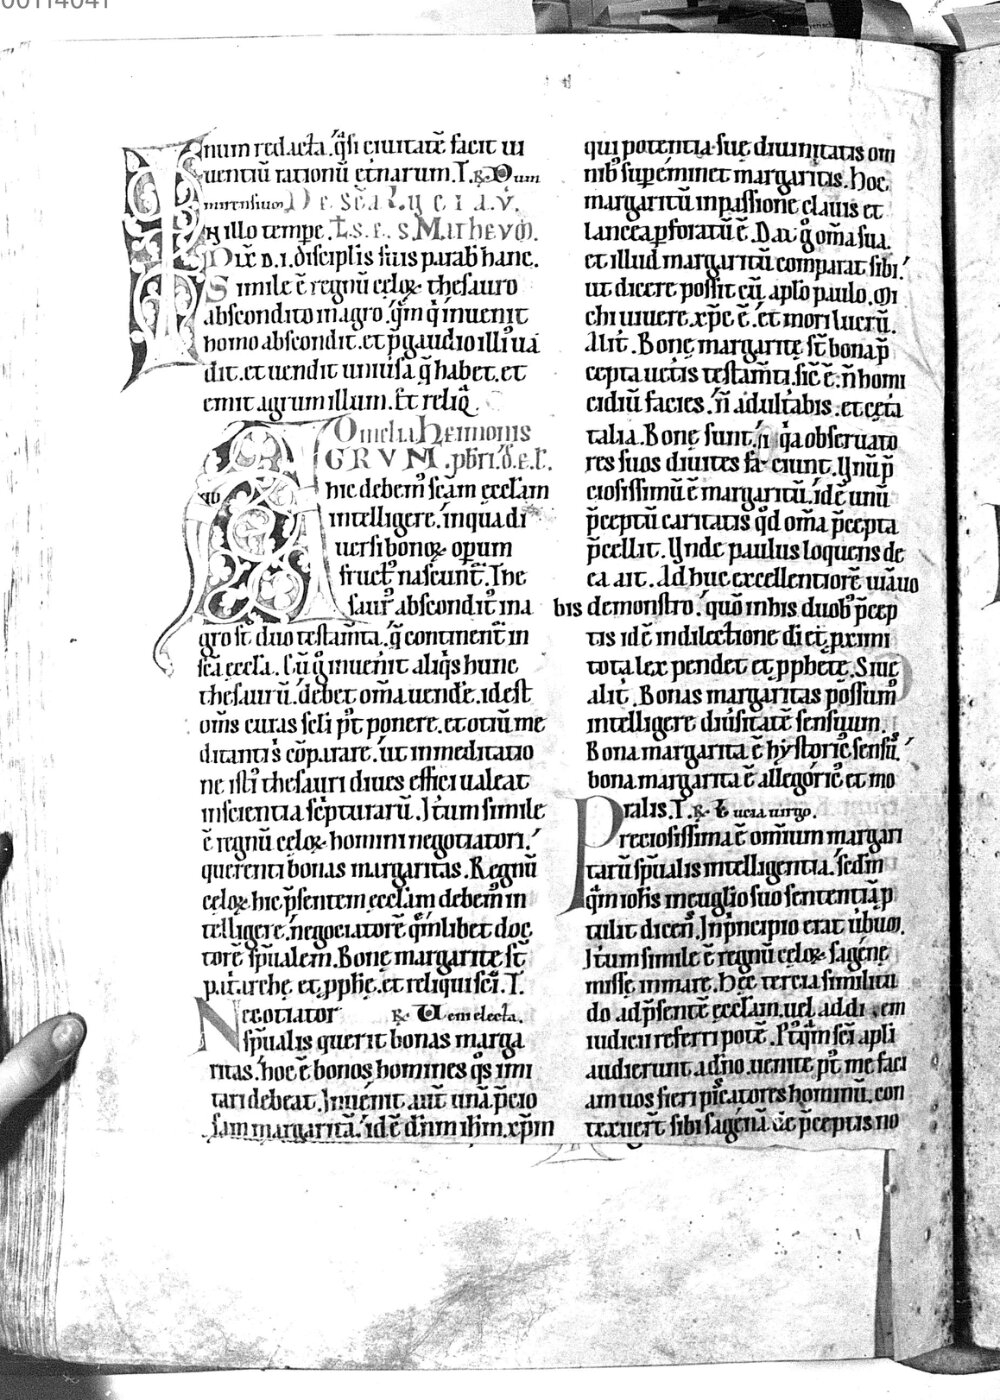 00114041
num redacta. q̇si ciuitatē facit ui
uentiū rationū etnarum. T. ℟. Dum
De scā Lucia. v̄.
N illo tempr̄. t. s. e. s. Matheum.
Dix̄ D. I. disciplis suis parab̄ hanc.
Simile ē regnū celoꝝ thesauro
abscondito in agro. q̄m q̇ inuenit
homo abscondit. et p̄ gaudio illiꝰ uā
dit. et uendit uniuīsa q̄ habet. et
emit agrum illum. Et reliq̄.
Omelia
GRVM. pbr̄i. d. e. l.
hic debemꝰ scām ecclam
intelligere. in qua di
uersi bonoꝝ operum
fructꝰ nascunt̄. The
saurꝰ abscondit̄ in a
gro st̄ duo testam̄ta. q̄ continent̄ in
scā eccla. Cū g̊ inuenit aliq̇s hunc
thesaurū. debet om̄a uend̄e. id est
om̄s curas scl̄i p̄t ponere. et otiū me
ditantiꝰ cōparare. ut in meditatio
ne istiꝰ thesauri diues effici ualeat
in scientia sc̄pturarū. Itum simile
ē regnū celoꝝ homini negotiatori.
querenti bonas margaritas. Regnū
celoꝝ hic p̄sentem ecclām debemꝰ in
telligere. negociatorē q̄mlibet doc
torē sp̄ualem. Bonę margaritę st̄
patriarchę et pphe. et reliqui sc̄i. T.
Negotiator ℟. Uem electa.
sp̄ualis querit bonas marga
ritas. hoc ē bonos homines q̊s imi
tari debeat. Inuenit aut̄ unā p̄cio
sam margaritā. id ē dn̄m ih̄m xp̄m
qui potentia suę diuinitatis om
nibꝰ supeminet margaritis. Hoc
margaritū in passione clauis et
lancea pforatū ē. Dat g̊ om̄a sua.
et illud margaritū comparat sibi.
ut dicere possit cū aplo paulo. Mi
chi uiuere xp̄c ē. et mori lucrū.
Alit̄. Bonę margaritę st̄ bona p̄
cepta uetis testam̄ti. sic̄ ē. n̄ homi
cidiū facies. n̄ adultabis. et cęta
talia. Bonę sunt. q̇a obseruato
res suos diuites faciunt. Vnū p̄
ciosissimū ē margaritū. id ē unū
p̄ceptū caritatis qd̄ om̄a p̄cepta
p̄cellit. Vnde paulus loquens de
ea ait. Ad huc excellentiorē uiā uo
bis demonstro. quō in his duobꝰ p̄cep
tis id ē in dilectione di et p̄ximi
tota lex pendet et pphetę. Siue
alit̄. Bonas margaritas possumꝰ
intelligere diuīsitatē sensuum.
Bona margarita ē hystoricꝰ sensꝰ.
bona margarita ē allegoricꝰ et mo
ralis. T. ℟. Lucia uirgo.
Preciosissima ē omnium margari
tarū sp̄ualis intelligentia. scdm̄
q̄m ioh̄s in euglio suo sententiā p
tulit dicen̄. In p̄ncipio erat ūbum.
Itum simile ē regnū celoꝝ sagenę
missę in mare. Hęc tercia similitu
do ad p̄sentē ecclam. uel ad diem
iudicii referri potē. Postq̄m sc̄i apli
audierunt a dn̄o. uenite p̄t me faci
am uos fieri piscatores hominū. con
texuerꝰ sibi sagenā de p̄ceptis no